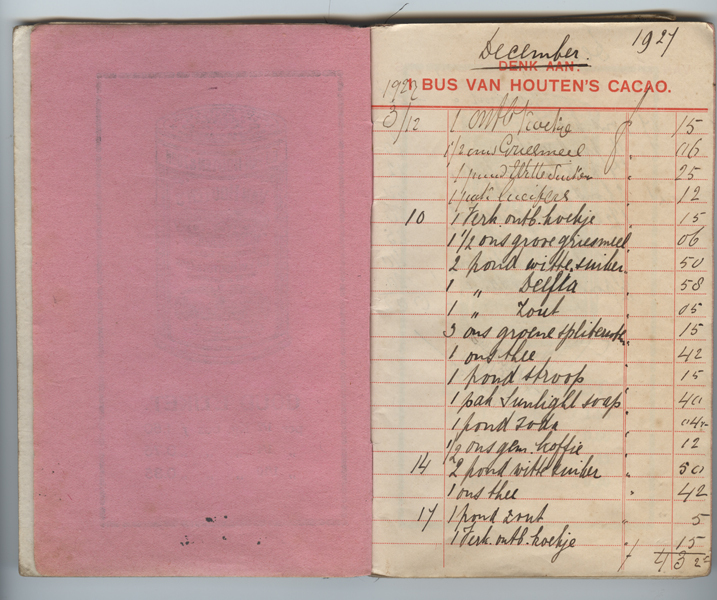 December 1927
DENK AAN.
BUS VAN HOUTEN'S CACAO.
1927
3/12 1 ontb. koekje f 15
1 1/2 ons Griesmeel " 06
1 pond Witte Suiker " 25
1 pak lucifers " 12
10 1 Verk. ontb. koekje " 15
1 1/2 ons grove griesmeel " 06
2 pond witte suiker " 50
1 " Delfia 58
1 " Zout 05
3 ons groene spliterwten " 15
1 ons thee " 42
1 pond stroop " 15
1 pak Sunlight soap " 40
1 pond zoda " 04
1/2 ons gem. koffie " 12
14 2 pond witte suiker " 50
1 ons thee " 42
17 1 pond zout " 5
1 Verk. ontb. koekje " 15
f 4 3